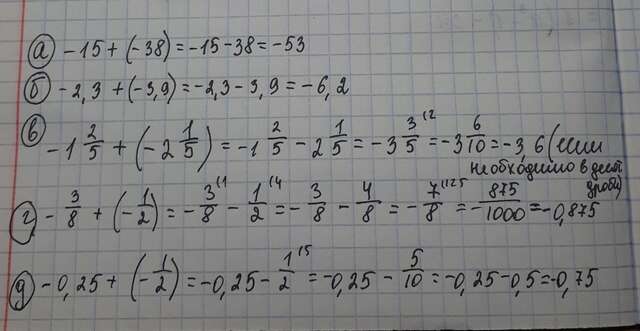 а) -15 + (-38) = -15 - 38 = -53
б) -2,3 + (-3,9) = -2,3 - 3,9 = -6,2
в) -1 2/5 + (-2 1/5) = -1 2/5 - 2 1/5 = -3 3/5 (2 = -3 6/10 = -3,6 (если
необходимо в десят
дроби)
г) -3/8 + (-1/2) = -3/8 (1 - 1/2 (4 = -3/8 - 4/8 = -7/8 (125 = -875/1000 = -0,875
д) -0,25 + (-1/2) = -0,25 - 1/2 (5 = -0,25 - 5/10 = -0,25 - 0,5 = -0,75